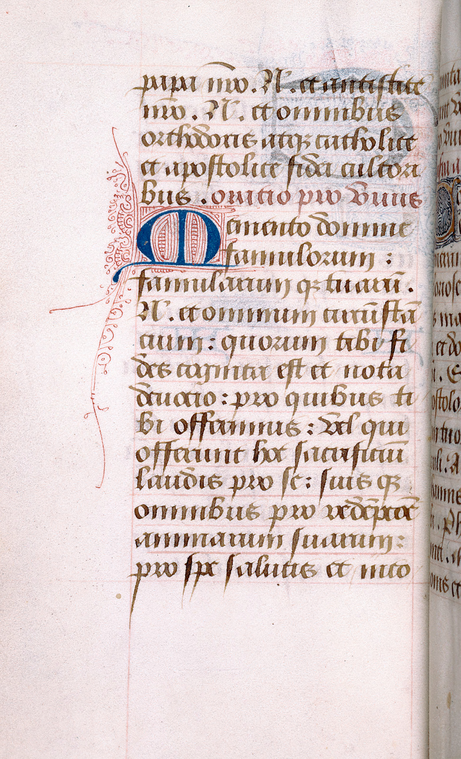 papa nr̄o. N. et antistite
nr̄o. N. et omnibus
orthodoxis atq; catholice
et apostolice fidei cultori
bus. oratio pro viuis
Memento domine
famulorum :
famularum q; tuarū.
N. et omnium circūstā
cium : quorum tibi fi
des cognita est et nota
deuocio : pro quibus ti
bi offerimus : vel qui
offerunt hoc sacrificiū
laudis pro se : suis q;
omnibus pro redēpcōe
animarum suarum :
pro spe salutis et inco